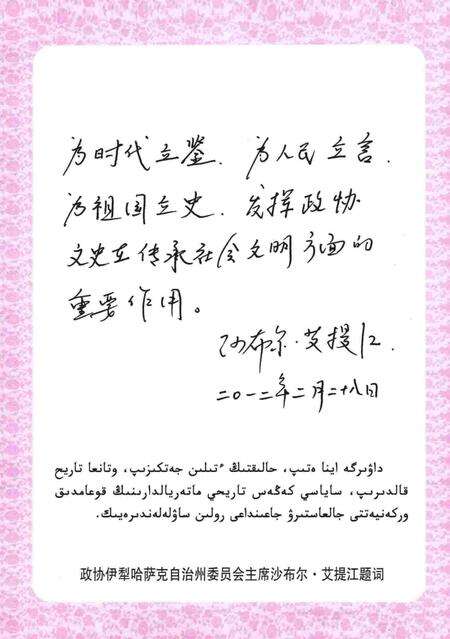 为时代立鉴、为人民立言、
为祖国立史、发挥政协
文史在传承社会文明方面的
重要作用。
沙布尔·艾提江.
二〇一二年二月二十八日
داۋىرگە اينا ەتىپ، حالىقتىڭ ٴتىلىن جەتكىزىپ، وتانعا تاريح
قالدىرىپ، ساياسي كەڭەس تاريحي ماتەريالدارىنىڭ قوعامدىق
وركەنيەتتى جالعاستىرۋ جاعىنداعى رولىن ساۋلەلەندىرەيىك.
政协伊犁哈萨克自治州委员会主席沙布尔·艾提江题词